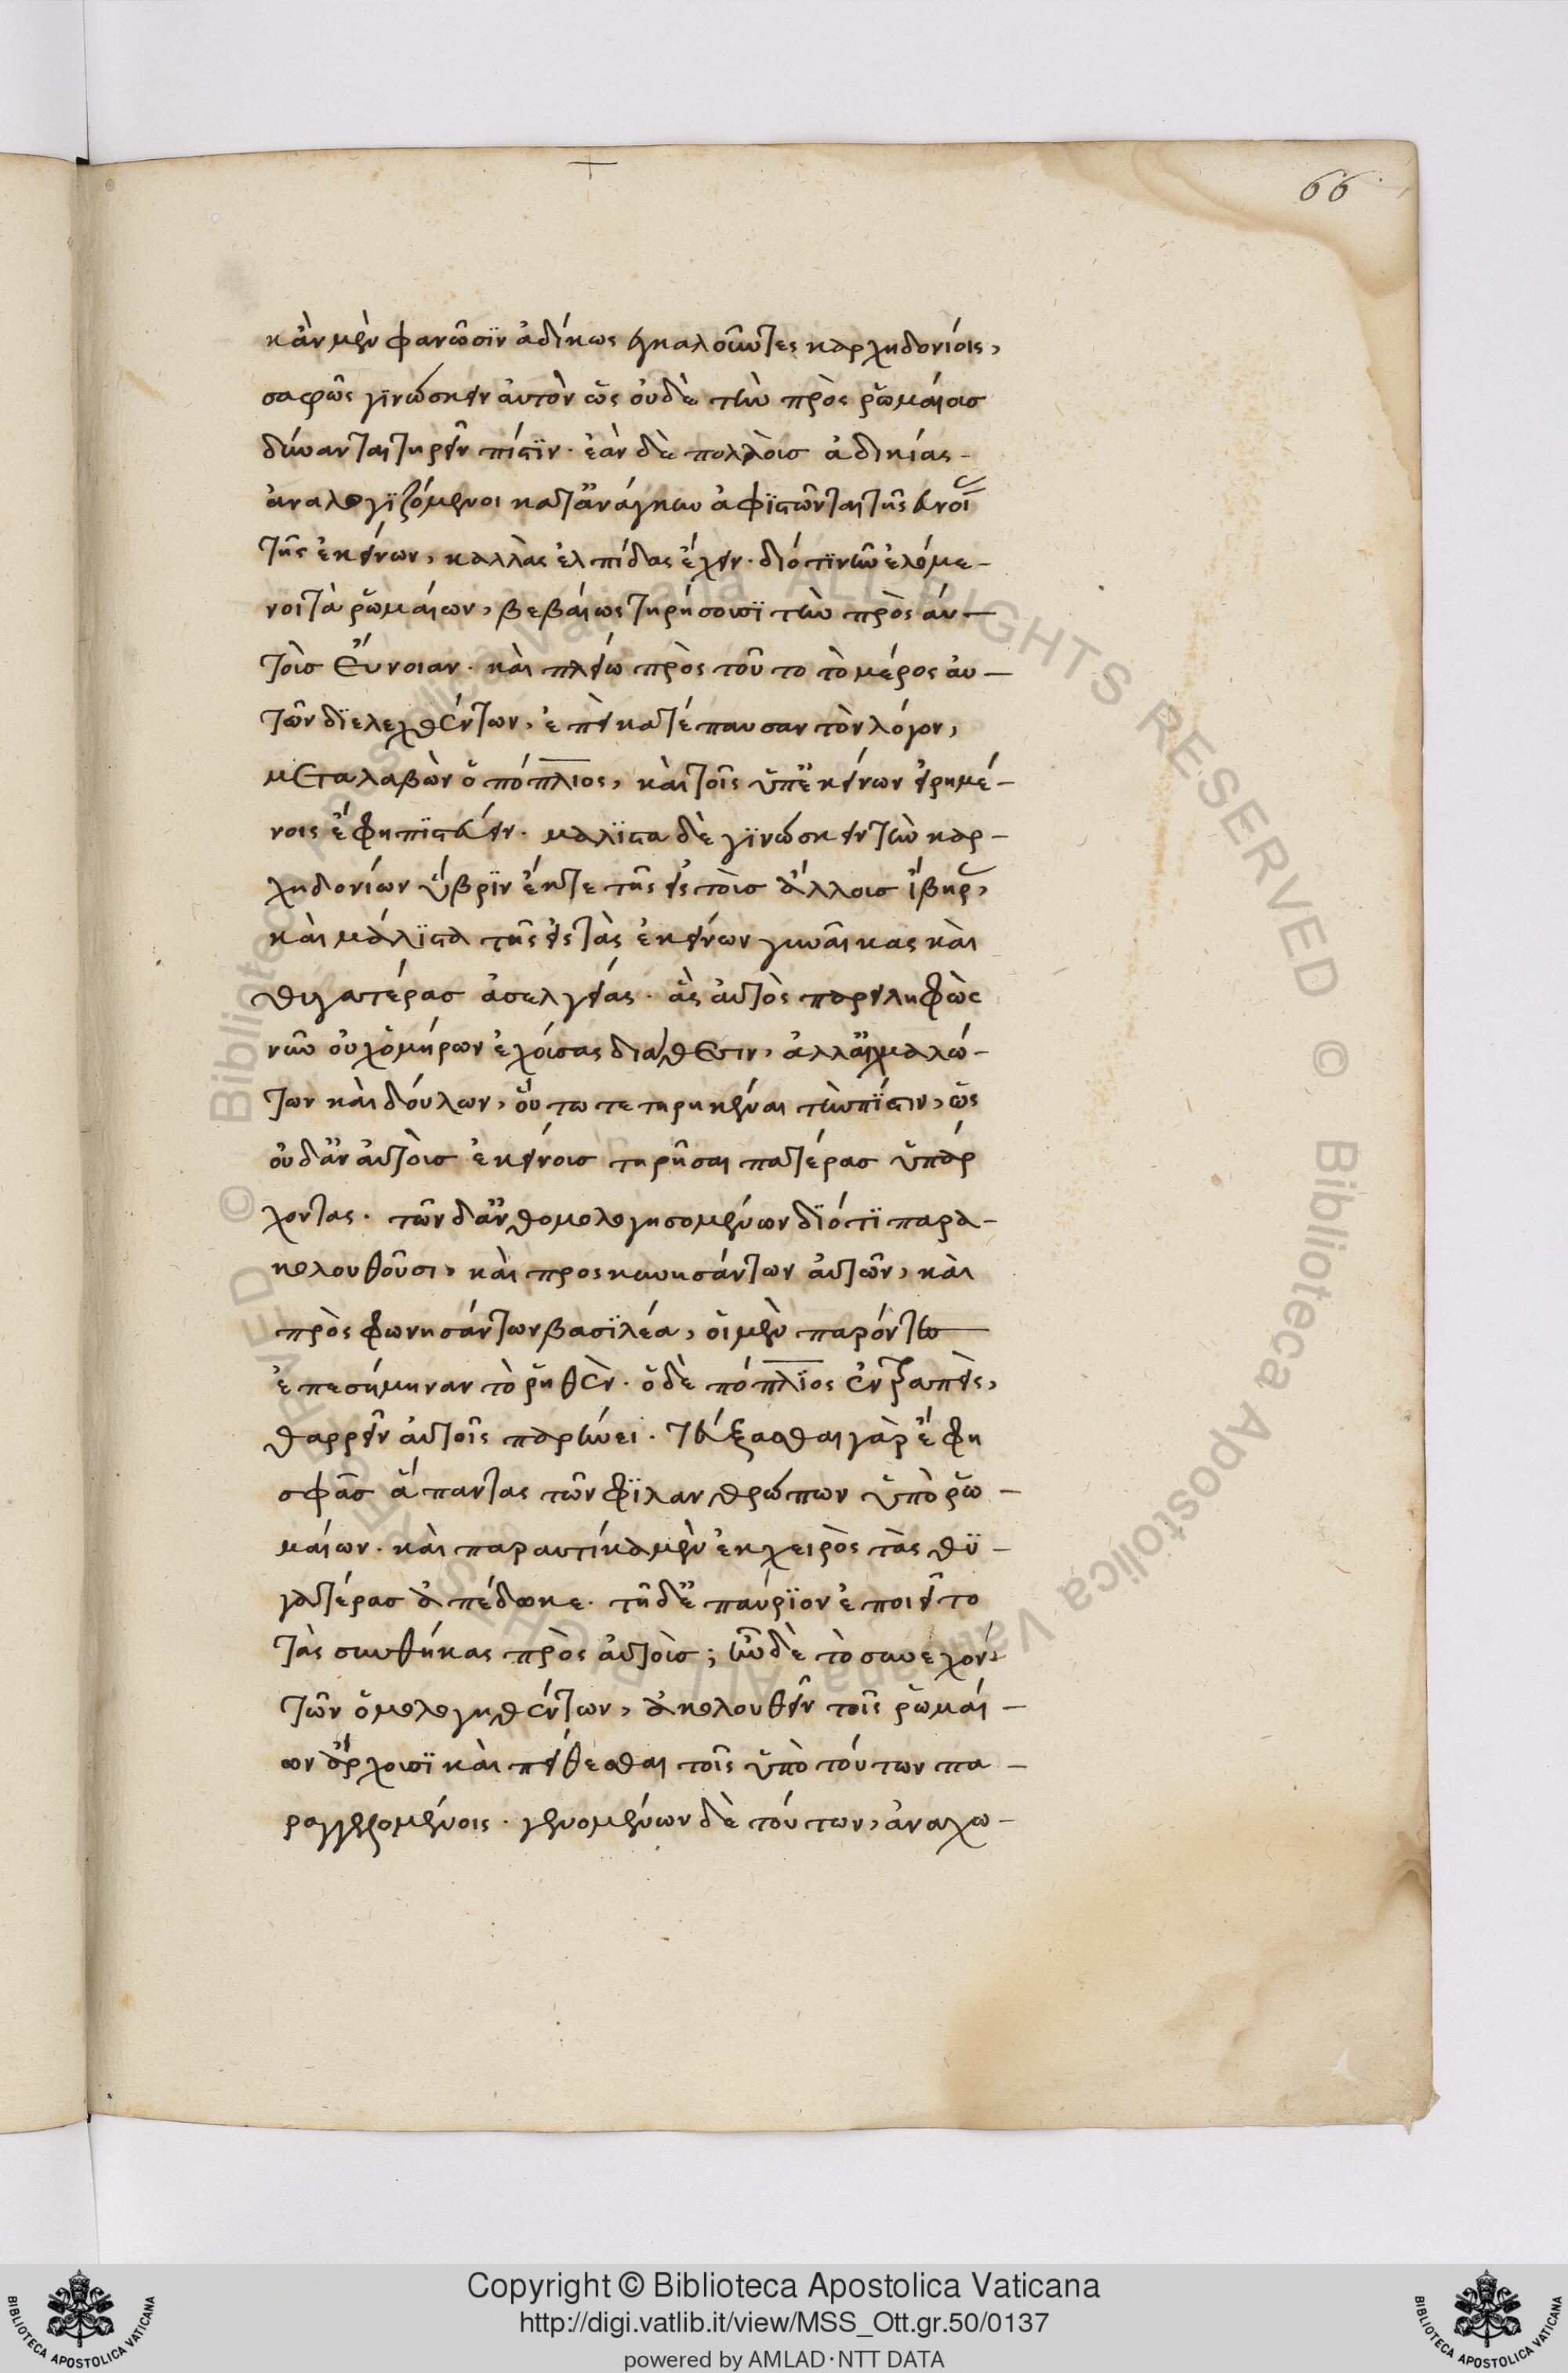 66
κἂν μὲν φανῶσϊν ἀδίκως ἐγκαλοῦντες καρχηδονίοις,
σαφῶς γϊνώσκειν ἀυτὸν ὡς οὐδὲ τὴν πρὸς ῥωμάιους
δύνανται τηρεῖν πίστϊν· ἐὰν δὲ πολλοὺσ ἀδικίας-
ἀναλογϊζόμενοι κατανάγκην ἀφϊστῶνται τῆς ἐυνοί
τῆς ἐκείνων, καλλὰς ἐλπίδας ἔχειν· διότϊ νῦν ἑλόμε-
νοι τὰ ῥωμάιων, βεβάιως τηρήσουσϊ τὴν πρὸς ἀυ-
τοὺσ ἔυνοιαν· καὶ πλείω πρὸς τοῦ το τὸ μέρος ἀυ-
τῶν δϊελεχθέντων, ἐπεὶ κατέπαυσαν τὸν λόγον,
μεταλαβὼν ὁ πόπλιος, καὶ τοῖς ὑπεκείνων ειρημέ-
νοις ἔφη πϊστεύειν· μαλϊστα δὲ γϊνώσκειν τὴν καρ-
χηδονίων ὕβρϊν ἔκτε τῆς εἰς τοὺσ ἄλλουσ ἴβηρ,
καὶ μάλϊστα τῆς εἰς τὰς ἐκείνων γυναῖκας καὶ
θυγατέρασ ἀσελγείας· ἃς αὐτὸς παρειληφὼς
νῦν οὐχομήρων ἐχούσας διάθεσιν, ἀλλαἰχμαλώ-
των καὶ δούλων, οὕτω τετηρηκέναι τὴν πίστιν, ὡς
οὐδἂν αὐτοὺσ ἐκείνουσ τηρῆσαι πατέρασ ὑπάρ
χοντας· τῶν δἀνθομολογησομένων δϊότϊ παρα-
κολουθοῦσι, καὶ προσκυνησάντων αὐτῶν, καὶ
πρὸς φωνησάντων βασϊλέα, οἱ μὲν παρόντες
ἐπεσήμηναν τὸ ῥηθὲν· ὁ δὲ πόπλϊος ἐντραπεὶς,
θαρρεῖν αὐτοῖς παρήνει· τεύξασθαι γὰρ ἔφη
σφᾶσ ἅπαντας τῶν φϊλανθρώπων ὑπὸ ῥω-
μάιων· καὶ παραυτίκα μὲν ἐκ χειρὸς τὰς θϋ-
γατέρασ ἀπέδωκε· τῆ δἐπαύρϊον ἐποιεῖτο
τὰς συνθήκας πρὸς αὐτοὺσ; ἦν δὲ τὸ συνεχον
τῶν ὁμολογηθέντων, ἀκολουθεῖν τοῖς ῥωμάι-
ων ἄρχουσϊ καὶ πείθεσθαι τοῖς ὑπὸ τούτων πα-
ραγγελλομένοις· γενομένων δὲ τούτων, ἀναχω-
Copyright © Biblioteca Apostolica Vaticana
http://digi.vatlib.it/view/MSS_Ott.gr.50/0137
powered by AMLAD·NTT DATA